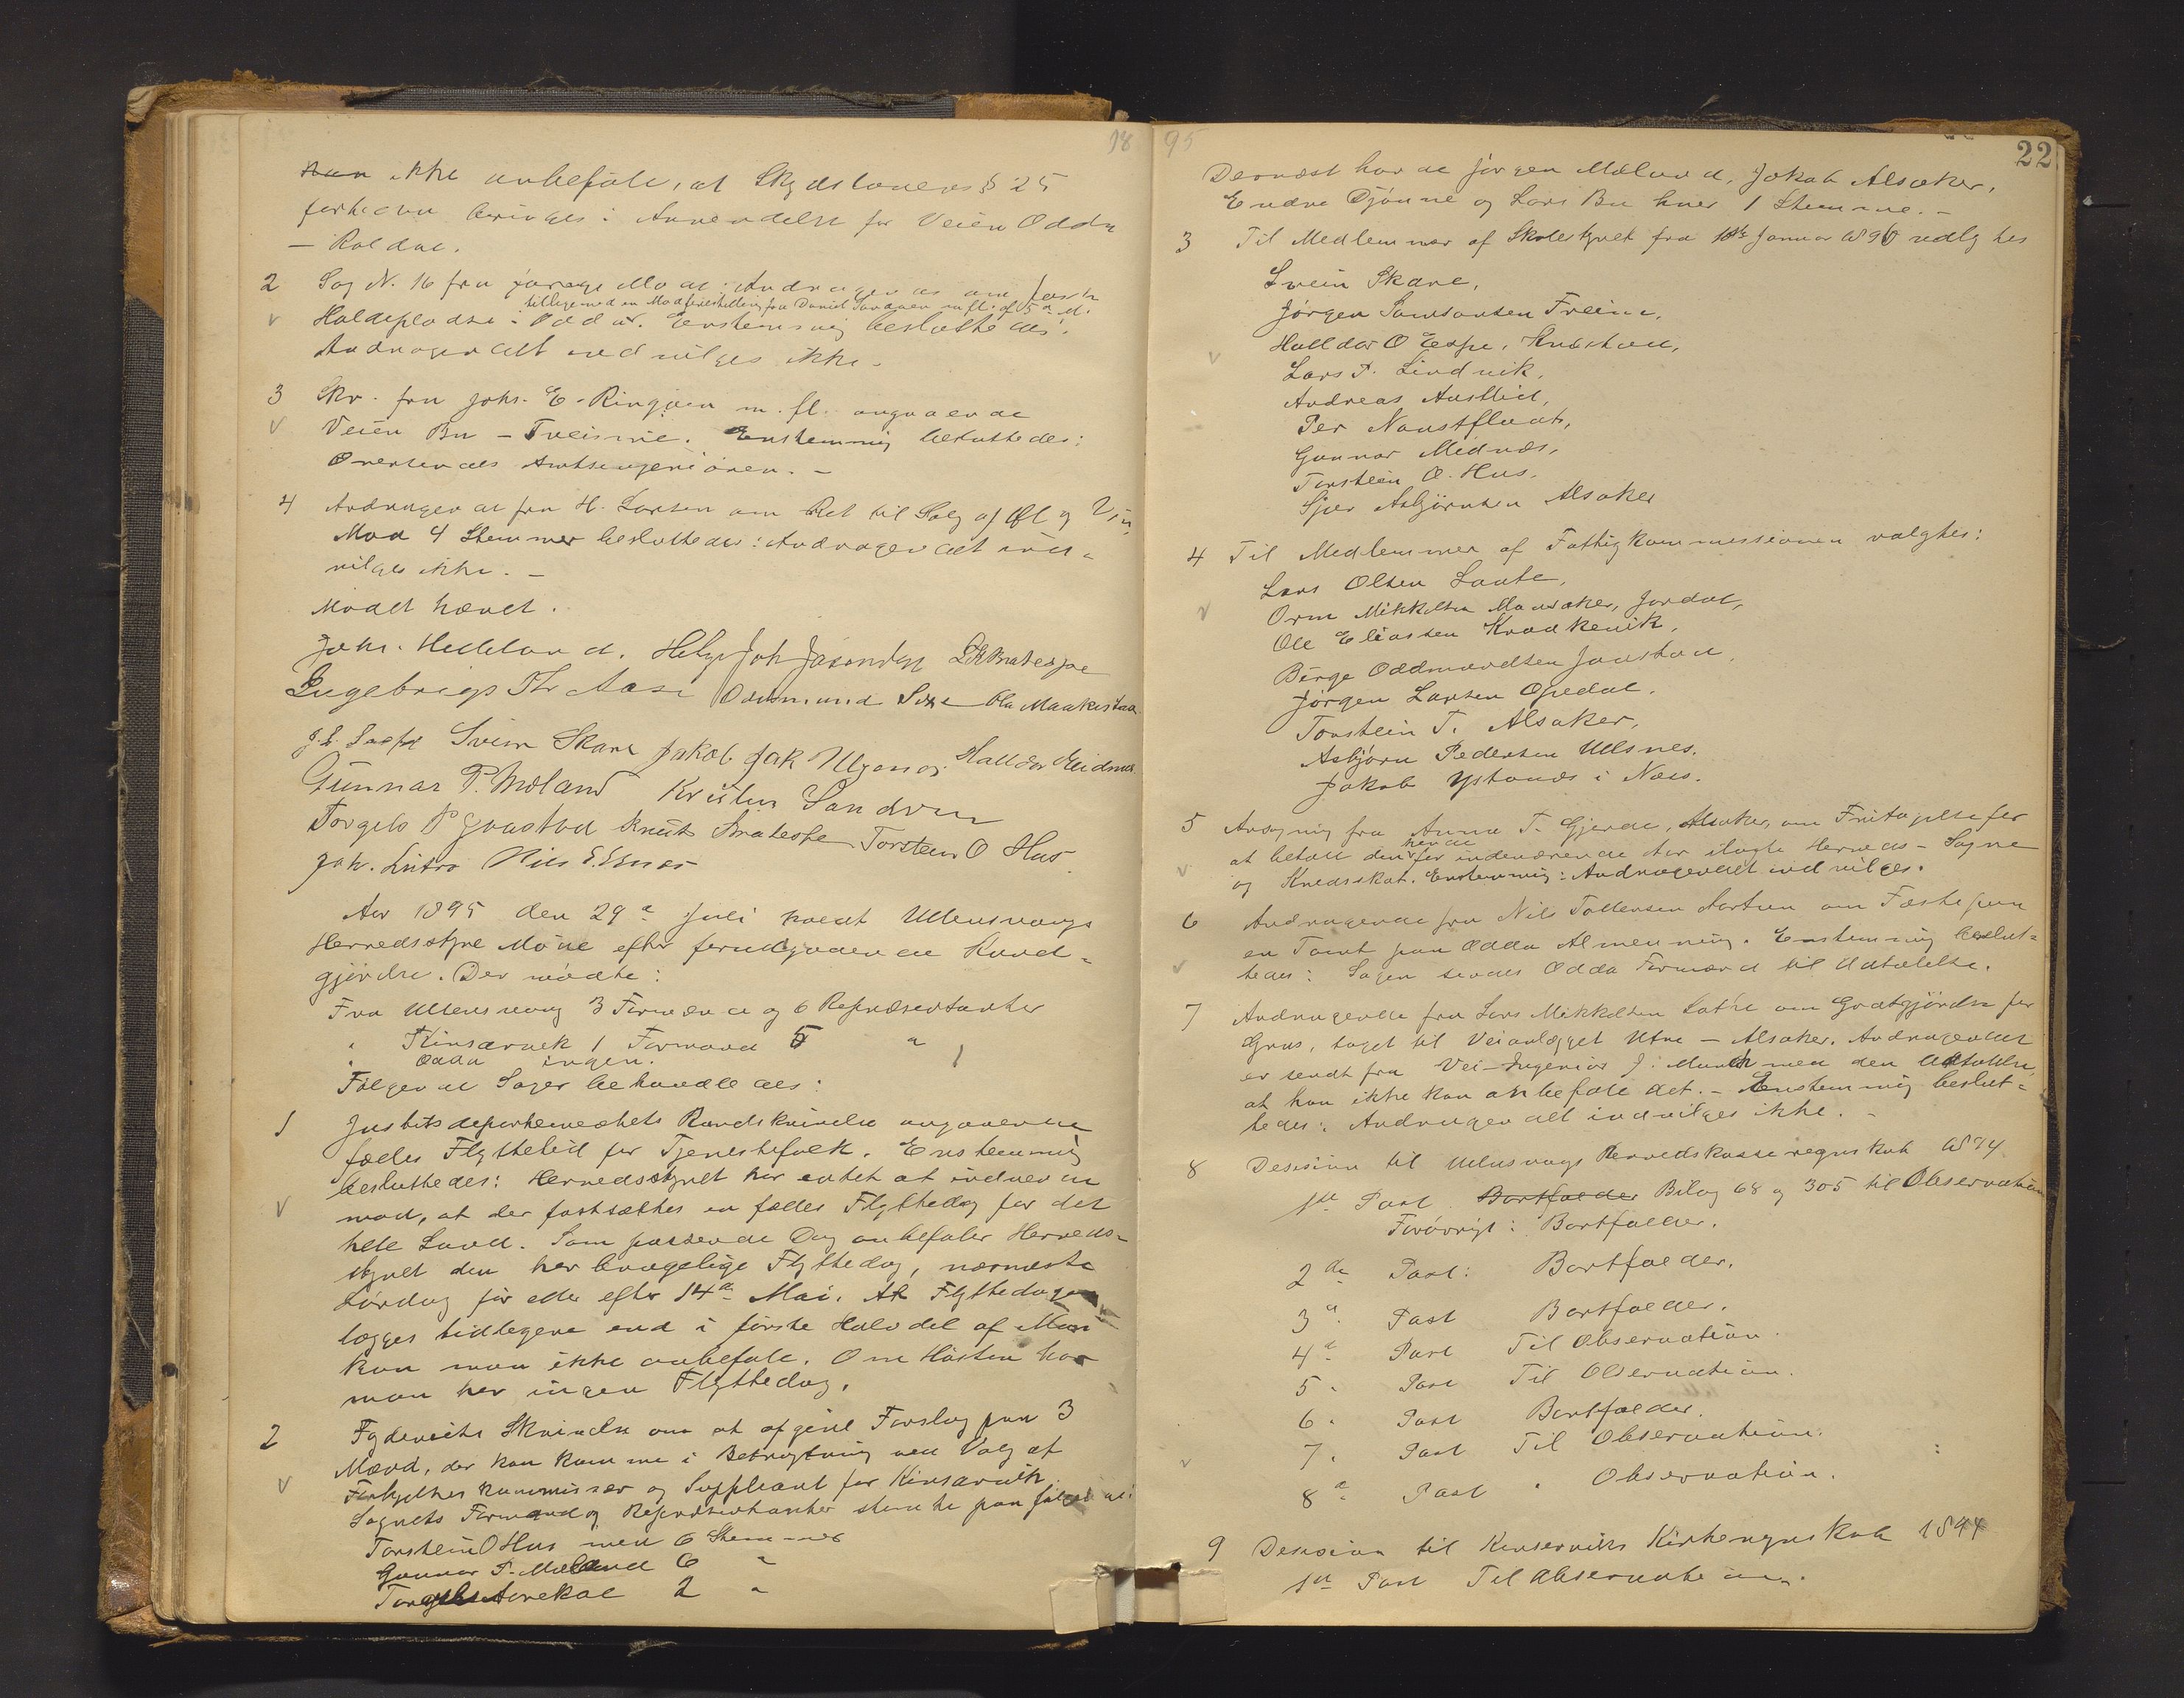 18
kan ikke anbefale, at Skydslovens § 25
forheden bringes i Anvendelse for Veien Odda
— Røldal.
2 Sag N. 16 fra forrige Møde: Andragende om faste
tilligemed en Modforestilling fra Daniel Sandven m.fl. af 5te d.M.
Holdepladse i Odda. Enstemmig besluttedes:
Andragendet indvilges ikke.
3 Skr. fra Johs. E. Ringøen m. fl. angaaende
Veien Bu – Tveisme. Enstemmig besluttedes:
Oversendes Amtsingeniøren. –
4 Andragende fra H. Larsen om Ret til Salg af Øl og Vin.
Mod 4 Stemmer besluttedes: Andragendet ind-
vilges ikke. –
Mødet hævet.
Johs. Helleland. Helge Joh Jaastad L K Bratespe
Ingebrigt Th Aase Oddmund Sexe Ola Maakestad
J. L. Svein Skare Jakob Jak Halldor Meidnæs
Gunnar P. Mæland Kristen Sandven
Torgils P Jaastad Knut Bratespe Torstein O Hus
Joh. Lutro Nils E. Esnes
Aar 1895 den 29de Juli holdt Ullensvangs
Herredsstyre Møde efter forudgaaende Kund-
gjørelse. Der mødte:
Fra Ullensvang 3 Formænd og 6 Repræsentanter
" Kinsarvik 1 Formand 5 "
" Odda ingen. 1
Følgende Sager behandledes:
1 Justitsdepartementets Rundskrivelse angaaende
fælles Flyttetid for Tjenestefolk. Enstemmig
besluttedes: Herredsstyret har intet at indvende
mod, at der fastsættes en fælles Flyttedag for det
hele Land. Som passende Dag anbefaler Herreds-
styret den her brugelige Flyttedag, nærmeste
Lørdag før eller efter 14de Mai. At Flyttedagen
lægges tidligere end i første Halvdel af Mai
kan man ikke anbefale. Om Høsten har
man her ingen Flyttedag.
2 Fogderiets Skrivelse om at afgive Forslag paa 3
Mænd, der kan komme i Betragtning ved Valg af
Forligelseskommissær og Suppleant for Kinsarvik
Sognets Formænd og Repræsentanter stemte paa følgende:
Torstein O Hus med 6 Stemmer
Gunnar P. Mæland 6 "
Torgils Aarekol 2 "
95
22
Dernæst havde Jørgen Mæland, Jakob Alsaker,
Endre Djønne og Lars Bu hver 1 Stemme. –
3 Til Medlemmer af Skolestyret fra 1ste Januar 1896 valgtes
Svein Skare,
Jørgen Samsonsen Freim,
Halldor O Espe, Knbshau,
Lars T. Lindvik,
Andreas Austlid,
Per Naustflaat,
Gunnar Meidnæs,
Torstein O. Hus.
Sjur Asbjørnsen Alsaker
4 Til Medlemmer af Fattigkommissionen valgtes:
Lars Olsen Lante,
Orm Mikkelsen Mannsaker, Jordal,
Ole Eliassen Kraakevik,
Børge Oddmundsen Jaastad,
Jørgen Larsen Opedal.
Torstein T. Alsaker,
Asbjørn Pedersen Ullsnes.
Jakob Ystanæs i Næs.
5 Ansøgning fra Anna T. Gjerde, Alsaker, om Fritagelse for
at betale den hende for indeværende Aar ilagte Herreds- Sogne
og Kredsskat. Enstemmig: Andragendet indvilges.
6 Andragende fra Nils Tollevsen Aartun om Fæste paa
en Tomt paa Odda Almenning. Enstemmig beslut-
tedes: Sagen sendes Odda Formænd til Udtalelse.
7 Andragende fra Lars Mikkelsen Lothe om Godtgjørelse for
Grus, taget til Veianlægget Utne – Alsaker. Andragendet
er sendt fra Vei-Ingeniør J. Munch med den Udtalelse,
at han ikke kan anbefale det. – Enstemmig beslut-
tedes: Andragendet indvilges ikke. –
8 Desision til Ullensvangs Herredskasseregnskab 1894
1ste Post Bortfalder Bilag 68 og 305 til Observation
Forøvrigt: Bortfalder.
2de Post: Bortfalder.
3de Post Bortfalder.
4de Post Til Observation.
5. Post Til Observation.
6. Post Bortfalder.
7. Post Til Observation.
8de Post " Observation.
9 Desision til Kinserviks Kirkeregnskab 1894
1ste Post Til Observation.